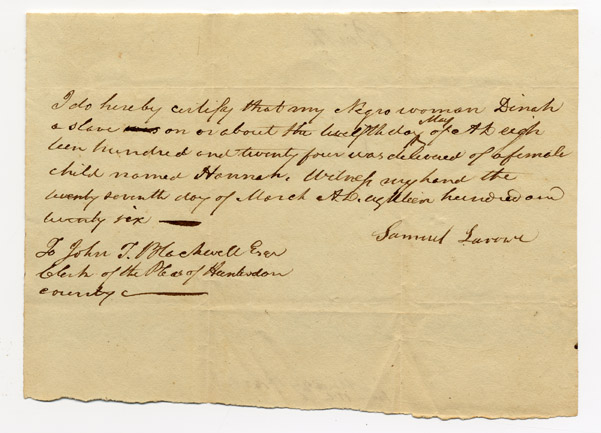 I do hereby certify that my Negro woman Dinah
a slave on or about the twelfth day of May A D eigh
teen hundred and twenty four was delivered of a female
child named Hannah. Witness my hand the
twenty seventh day of March A D. eighteen hundred and
twenty six
Samuel
To John T. Blackwell Esqr
Clerk of the Pleas of Hunterdon
county